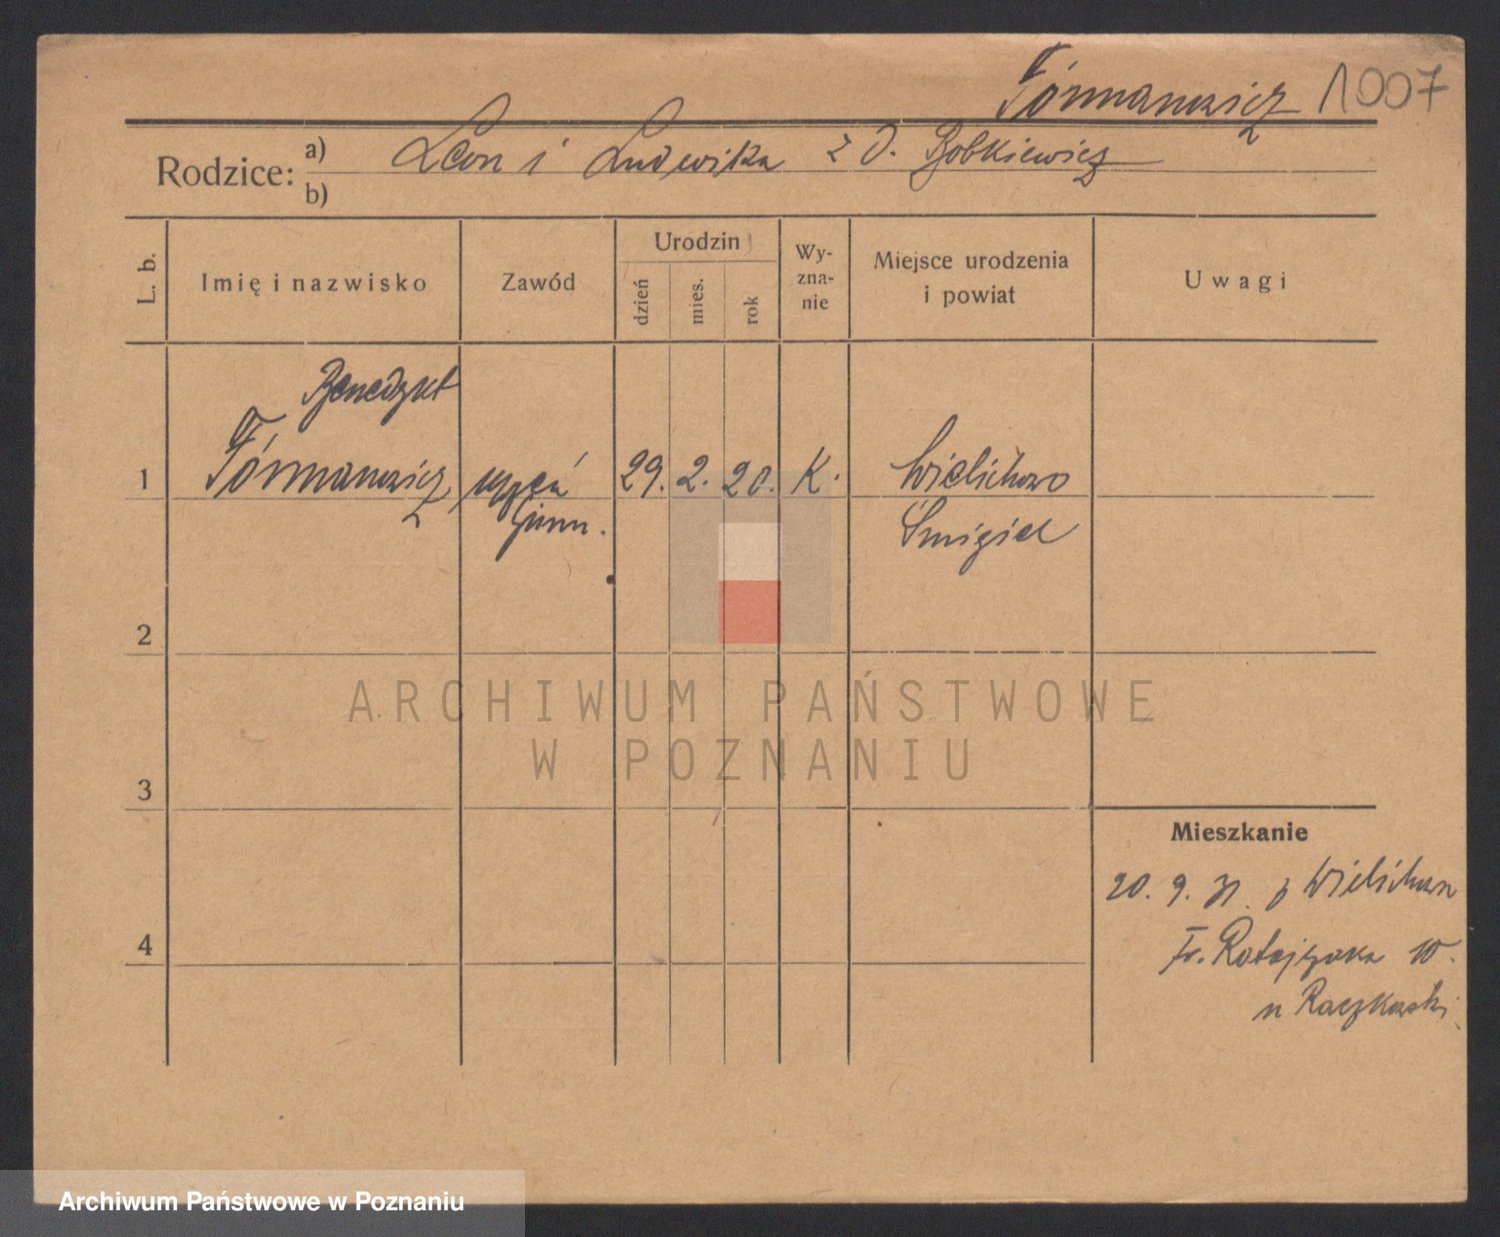 Fórmanowicz 1007
Rodzice: a) Leon i Ludwika z d. Bobkiewicz
b)
L. b.
Imię i nazwisko
Zawód
Urodzin
dzień
mies.
rok
Wy-
zna-
nie
Miejsce urodzenia
i powiat
Uwagi
Benedykt
1 Fórmanowicz uczeń 29. 2. 20. K. Wielichowo
Gimn. Śmigiel
2
3
4
Mieszkanie
20. 9. 31 z Wielichowa
Fr. Ratajczaka 10.
u Raczkowski
ARCHIWUM PAŃSTWOWE
W POZNANIU
Archiwum Państwowe w Poznaniu